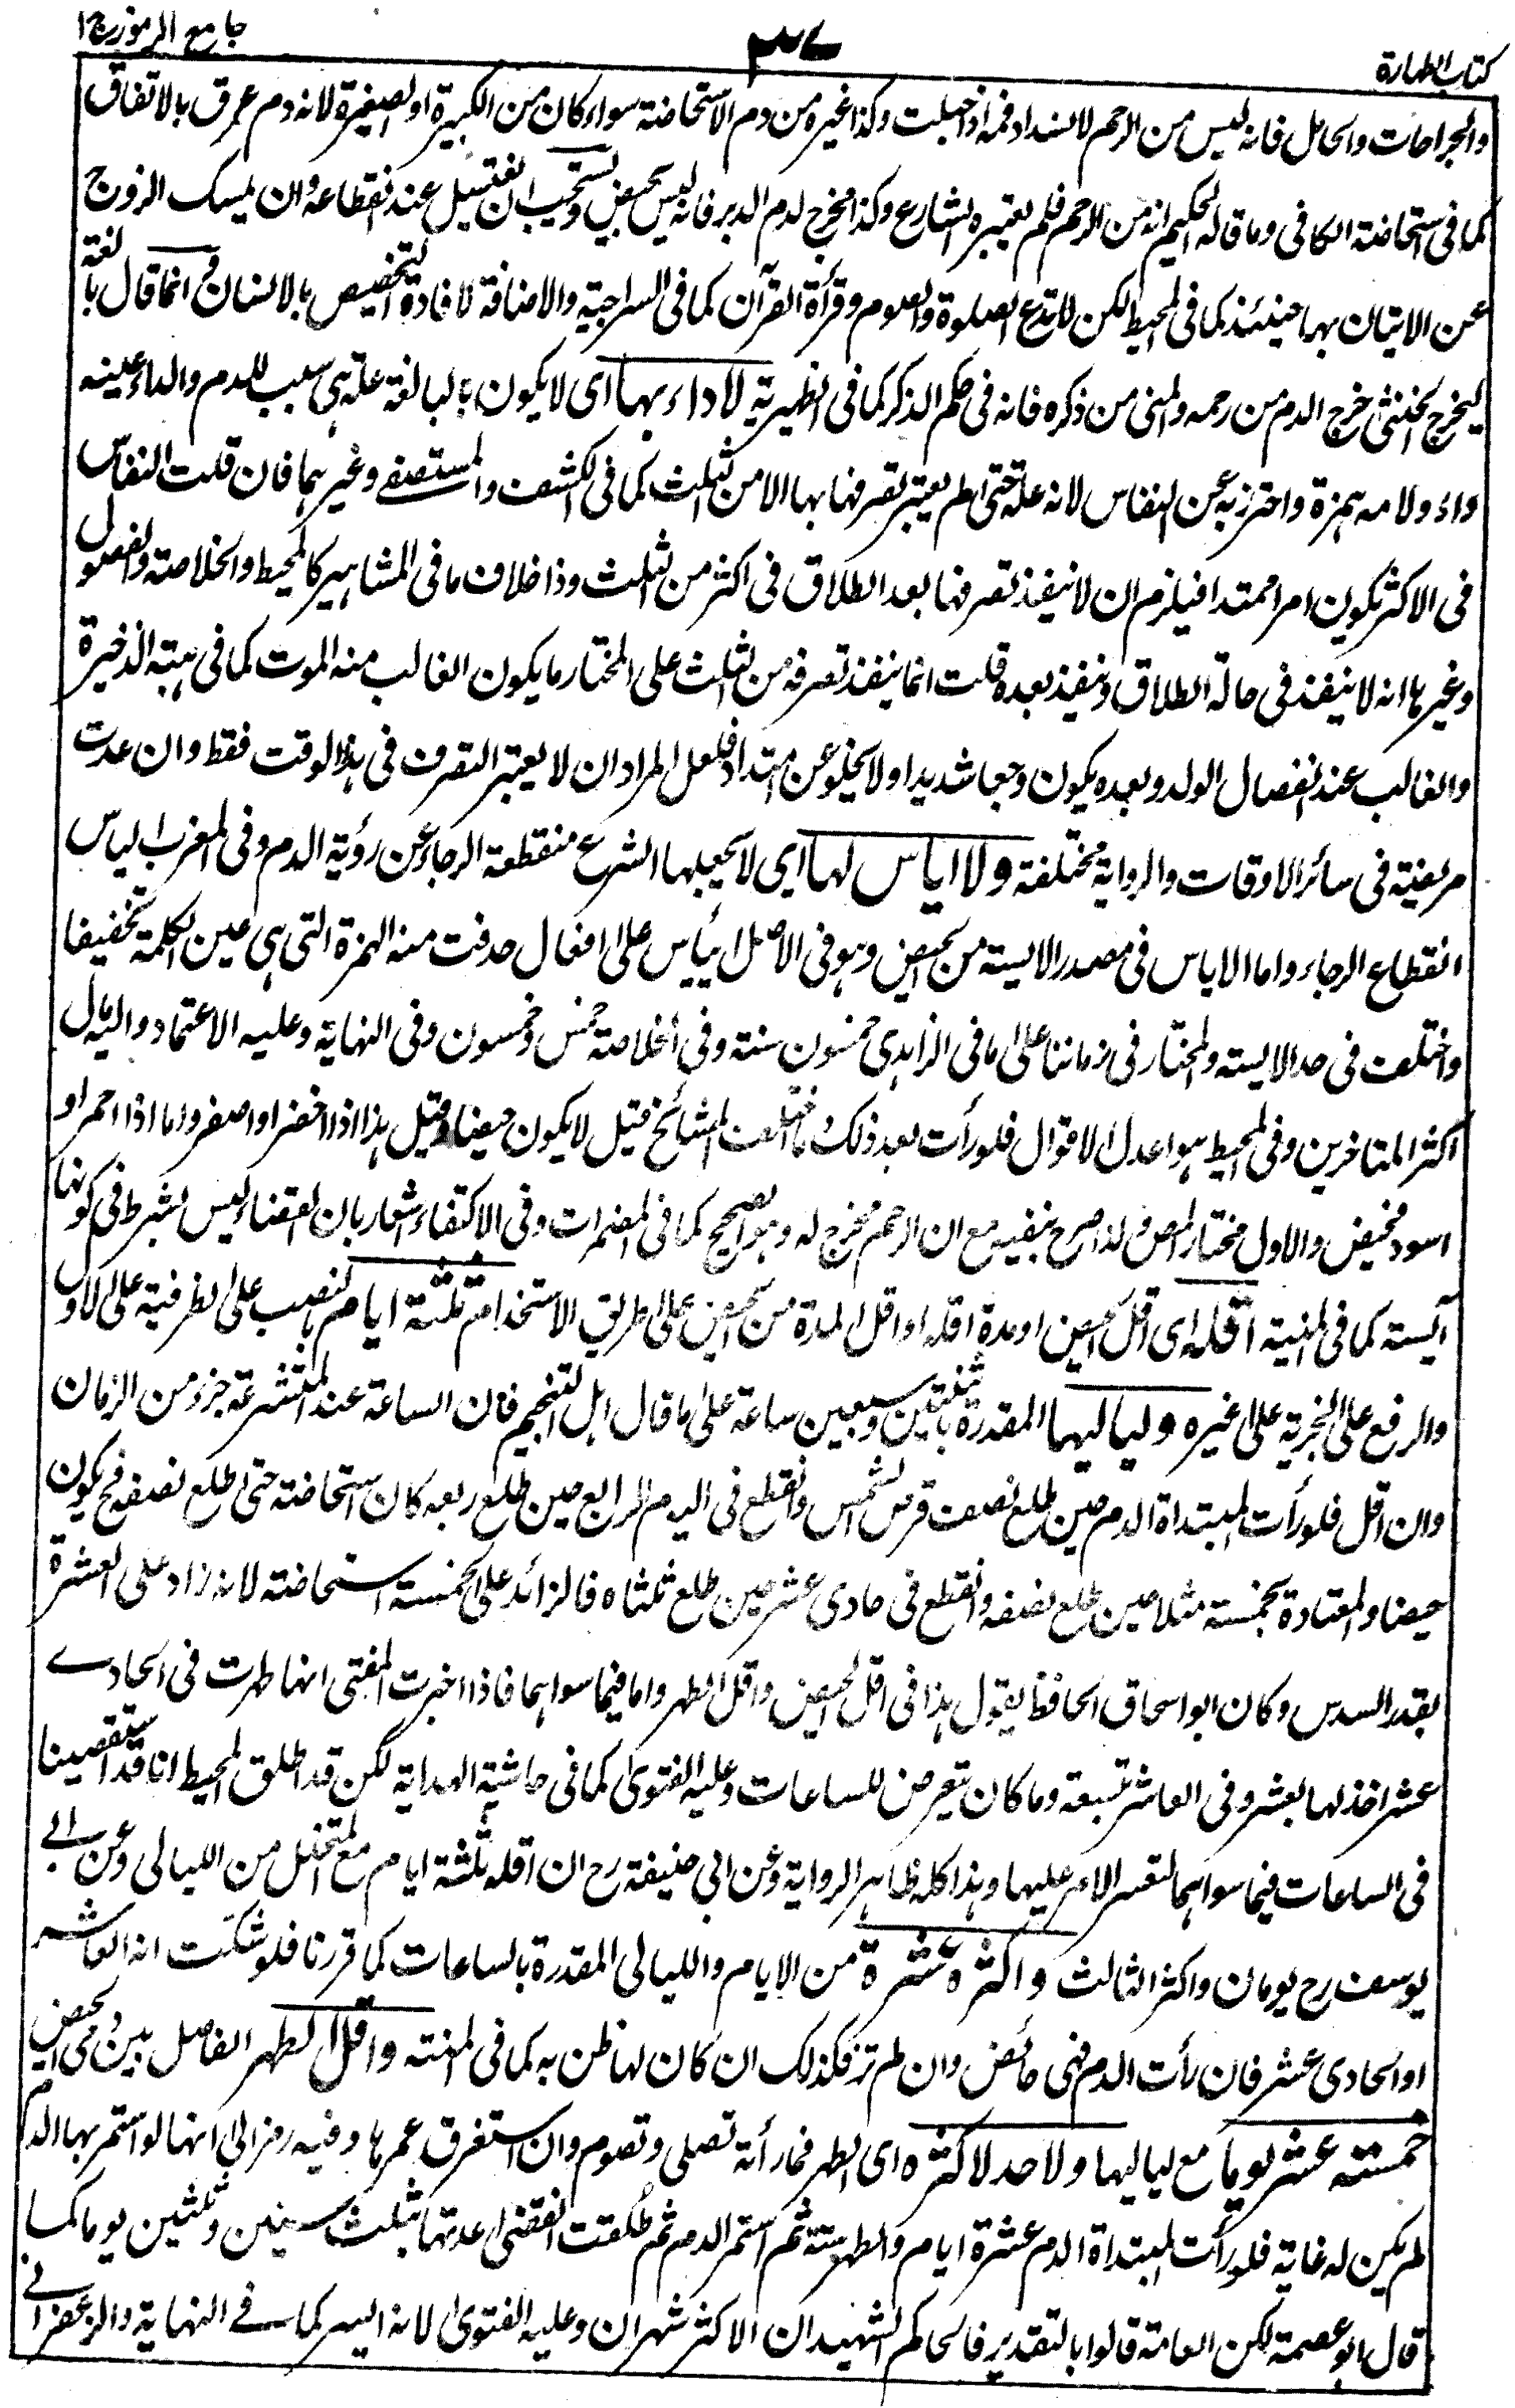 كتاب الطهارة
٣٧
جامع الرموز ج ١
والجراحات والحامل فانه ليس من الرحم لانسداد فمه اذا حبلت وكذا غيره من دم الاستحاضة سواء كان من الكبيرة او الصغيرة لانه دم عرق بالاتفاق
كما فى استحاضة الكافى وما قاله الحكيم انه من الرحم فلم يعتبره الشارع وكذا مخرج لدم الدبر فانه ليس بحيض ويستحب ان تغتسل عند انقطاعه وان يمسك الزوج
عن الاتيان بها حينئذ كما فى المحيط لكن لا تدع الصلوة والصوم وقرأة القرآن كما فى السراجية والاضافة لافادة التخصيص بالانسان وانما قال بالغة
ليخرج الخنثى خرج الدم من رحمه والمنى من ذكره فانه فى حكم الذكر كما فى الظهيرية لا داء بها اى لا يكون بالبالغة علة هى سبب للدم والداء عينه
واو ولامه همزة واحترز به عن النفاس لانه علة حتى لم يعتبر تصرفها بها الا من الثلث كما فى الكشف والمستصفى وغيرهما فان قلت النفاس
فى الاكثر يكون امرا ممتدا فيلزم ان لا ينفذ تصرفها بعد الطلاق فى اكثر من الثلث وذا خلاف ما فى المشاهير كالمحيط والخلاصة والفصول
وغيرها انه لا ينفذ فى حالة الطلاق وينفذ بعده قلت انما ينفذ تصرفه من الثلث على المختار ما يكون الغالب منه الموت كما فى هبة الذخيرة
والغالب عند انفصال الولد وبعده يكون وجعا شديدا ولا يخلو عن امتداد فلعل المراد ان لا يعتبر التصرف فى هذا الوقت فقط وان عدت
مريضة فى سائر الاوقات والرواية مختلفة ولا اياس لها اى لا يجعلها الشرع منقطعة الرجاء عن رؤية الدم وفى المغرب الياس
انقطاع الرجاء واما الاياس فى مصدر الايسة من الحيض وهو فى الاصل ائياس على افعال حذفت منه الهمزة التى هى عين الكلمة تخفيفا
واختلف فى حد الايسة والمختار فى زماننا على ما فى الزاهدى خمسون سنة وفى الخلاصة خمس وخمسون وفى النهاية وعليه الاعتماد واليه مال
اكثر المتاخرين وفى المحيط هو اعدل الاقوال فلو رأت بعد ذلك فاختلف المشائخ قيل لا يكون حيضا وقيل هذا اذا اخضر او اصفر واما اذا احمر او
اسود فحيض والاول مختار المص لذا صرح بنفيه مع ان الرحم مخرج له وهو الصحيح كما فى المضمرات وفى الاكتفاء اشعار بان القضاء ليس بشرط فى كونها
آيسة كما فى المنية اقله اى اقل الحيض او مدة اقله او اقل المدة من الحيض على طريق الاستخدام ثلثة ايام بالنصب على الظرفية على الاول
والرفع على الخبرية على غيره ولياليها المقدرة باثنتين وسبعين ساعة على ما قال اهل التنجيم فان الساعة عند المتشرعة جزء من الزمان
وان اقل فلو رأت المبتداة الدم حين طلع نصف قرص الشمس وانقطع فى اليوم الرابع حين طلع ربعه كان استحاضة حتى طلع نصفه فح يكون
حيضا والمعتادة بخمسة مثلا حين طلع نصفه وانقطع فى حادى عشر حين طلع ثلثاه فالزائد على الخمسة استحاضة لانه زاد على العشرة
بقدر السدس وكان ابو اسحاق الحافظ يقول هذا فى اقل الحيض واقل الطهر واما فيما سواهما فاذا اخبرت المفتى انها طهرت فى الحادى
عشر اخذ لها بعشر وفى العاشر بتسعة وما كان يتعرض للساعات وعليه الفتوى كما فى حاشية الهداية لكن قد اطلق المحيط انا قد استقصينا
فى الساعات فيما سواهما لتعسر الامر عليها وهذا كله ظاهر الرواية وعن ابى حنيفة رح ان اقله ثلثة ايام مع المتخلل من الليالى وعن ابى
يوسف رح يومان واكثر الثالث واكثره عشرة من الايام والليالى المقدرة بالساعات كما قررنا فلو شكت انه العاشر
او الحادى عشر فان رأت الدم فهى حائض وان لم تر فكذلك ان كان لها ظن به كما فى المنية واقل الطهر الفاصل بين دمى الحيض
خمسة عشر يوما مع لياليها ولا حد لاكثره اى الطهر فما رأته تصلى وتصوم وان استغرق عمرها وفيه رمز الى انها لو استمر بها الدم
لم يكن له غاية فلو رأت المبتداة الدم عشرة ايام والطهر ستة ثم استمر الدم ثم طلقت انقضى عدتها بثلث سنين وثلثين يوما كما
قال ابو عصمة لكن العامة قالوا بالتقدير فالحاكم الشهيد ان الاكثر شهران وعليه الفتوى لانه ايسر كما فى النهاية والزعفرانى